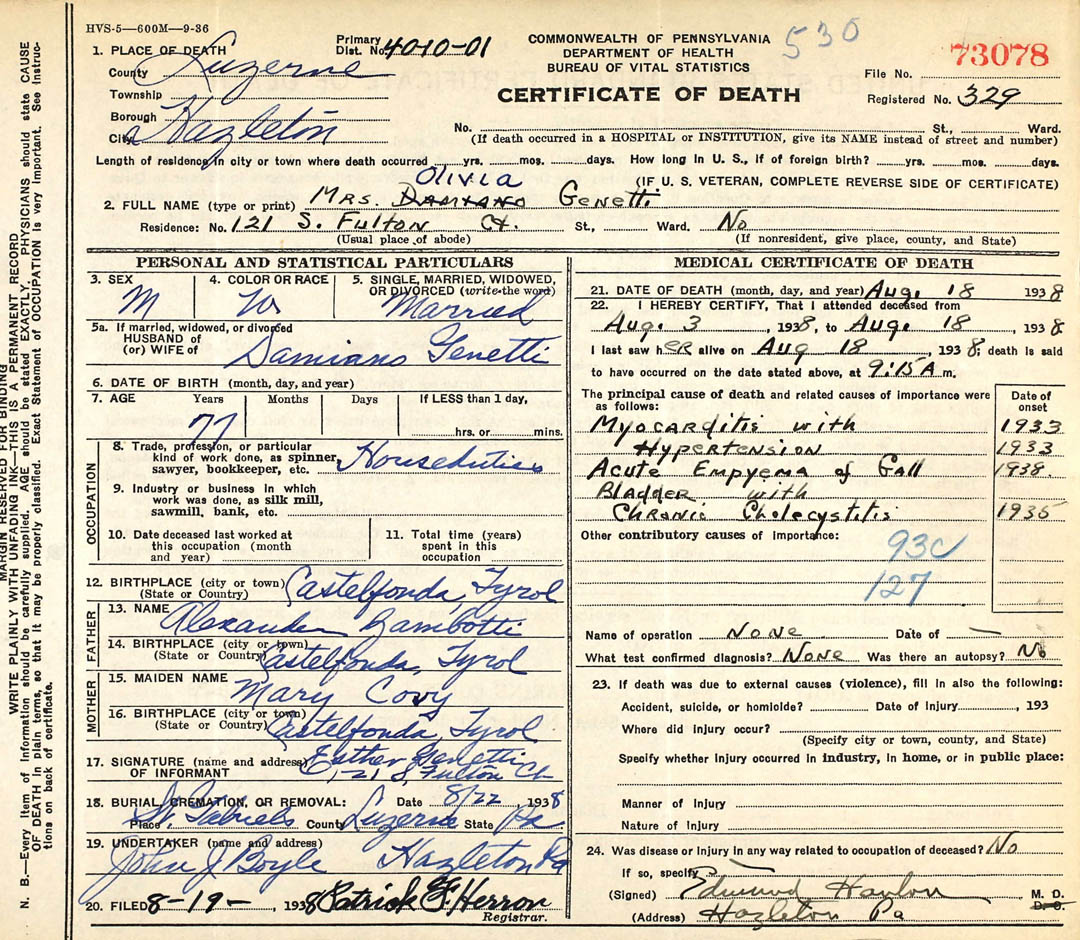 HVS-5—600M—9-36
1. PLACE OF DEATH
County Luzerne
Township
Borough
City Hazleton
Primary Dist. No. 4010-01
COMMONWEALTH OF PENNSYLVANIA
DEPARTMENT OF HEALTH
BUREAU OF VITAL STATISTICS
CERTIFICATE OF DEATH
530
73078
File No.
Registered No. 329
No. St., Ward.
(If death occurred in a HOSPITAL or INSTITUTION, give its NAME instead of street and number)
Length of residence in city or town where death occurred yrs. mos. days. How long in U. S., if of foreign birth? yrs. mos. days.
(IF U. S. VETERAN, COMPLETE REVERSE SIDE OF CERTIFICATE)
Olivia
2. FULL NAME (type or print) Mrs. Damiano Genetti
Residence: No. 121 S. Fulton Ct. St., Ward. No
(Usual place of abode) (If nonresident, give place, county, and State)
PERSONAL AND STATISTICAL PARTICULARS
3. SEX
M
4. COLOR OR RACE
W
5. SINGLE, MARRIED, WIDOWED, OR DIVORCED (write the word)
Married
5a. If married, widowed, or divorced
HUSBAND of
(or) WIFE of Damiano Genetti
6. DATE OF BIRTH (month, day, and year)
7. AGE Years Months Days If LESS than 1 day,
77 hrs. or mins.
OCCUPATION
8. Trade, profession, or particular kind of work done, as spinner, sawyer, bookkeeper, etc. Houseduties
9. Industry or business in which work was done, as silk mill, sawmill, bank, etc.
10. Date deceased last worked at this occupation (month and year)
11. Total time (years) spent in this occupation
12. BIRTHPLACE (city or town) Castelfonda, Tyrol
(State or Country)
FATHER
13. NAME Alexander Zambotti
14. BIRTHPLACE (city or town)
(State or Country) Castelfonda, Tyrol
MOTHER
15. MAIDEN NAME Mary Covy
16. BIRTHPLACE (city or town)
(State or Country) Castelfonda, Tyrol
17. SIGNATURE (name and address) Esther Genetti
OF INFORMANT 121 S. Fulton Ct
18. BURIAL, CREMATION, OR REMOVAL: Date 8/22, 1938
Place St. Gabriels County Luzerne State Pa
19. UNDERTAKER (name and address)
John J Boyle Hazleton Pa
20. FILED 8-19-, 1938 Patrick F Herron
Registrar.
MEDICAL CERTIFICATE OF DEATH
21. DATE OF DEATH (month, day, and year) Aug. 18 1938
22. I HEREBY CERTIFY, That I attended deceased from
Aug. 3, 1938, to Aug. 18, 1938
I last saw her alive on Aug 18, 1938; death is said
to have occurred on the date stated above, at 9:15 A m.
The principal cause of death and related causes of importance were as follows:
Date of onset
Myocarditis with 1933
Hypertension 1933
Acute Empyema of Gall 1938.
Bladder with
Chronic Cholecystitis 1935
Other contributory causes of importance:
93C
127
Name of operation None Date of —
What test confirmed diagnosis? None Was there an autopsy? No
23. If death was due to external causes (violence), fill in also the following:
Accident, suicide, or homicide? Date of injury, 193
Where did injury occur?
(Specify city or town, county, and State)
Specify whether injury occurred in industry, in home, or in public place:
Manner of injury
Nature of injury
24. Was disease or injury in any way related to occupation of deceased? No
If so, specify
(Signed) Edmund Hanlon M. D.
D. O.
(Address) Hazleton Pa
MARGIN RESERVED FOR BINDING
WRITE PLAINLY WITH UNFADING INK—THIS IS A PERMANENT RECORD
N. B.—Every item of information should be carefully supplied. AGE should be stated EXACTLY. PHYSICIANS should state CAUSE
OF DEATH in plain terms, so that it may be properly classified. Exact Statement of OCCUPATION is very important. See instructions on back of certificate.